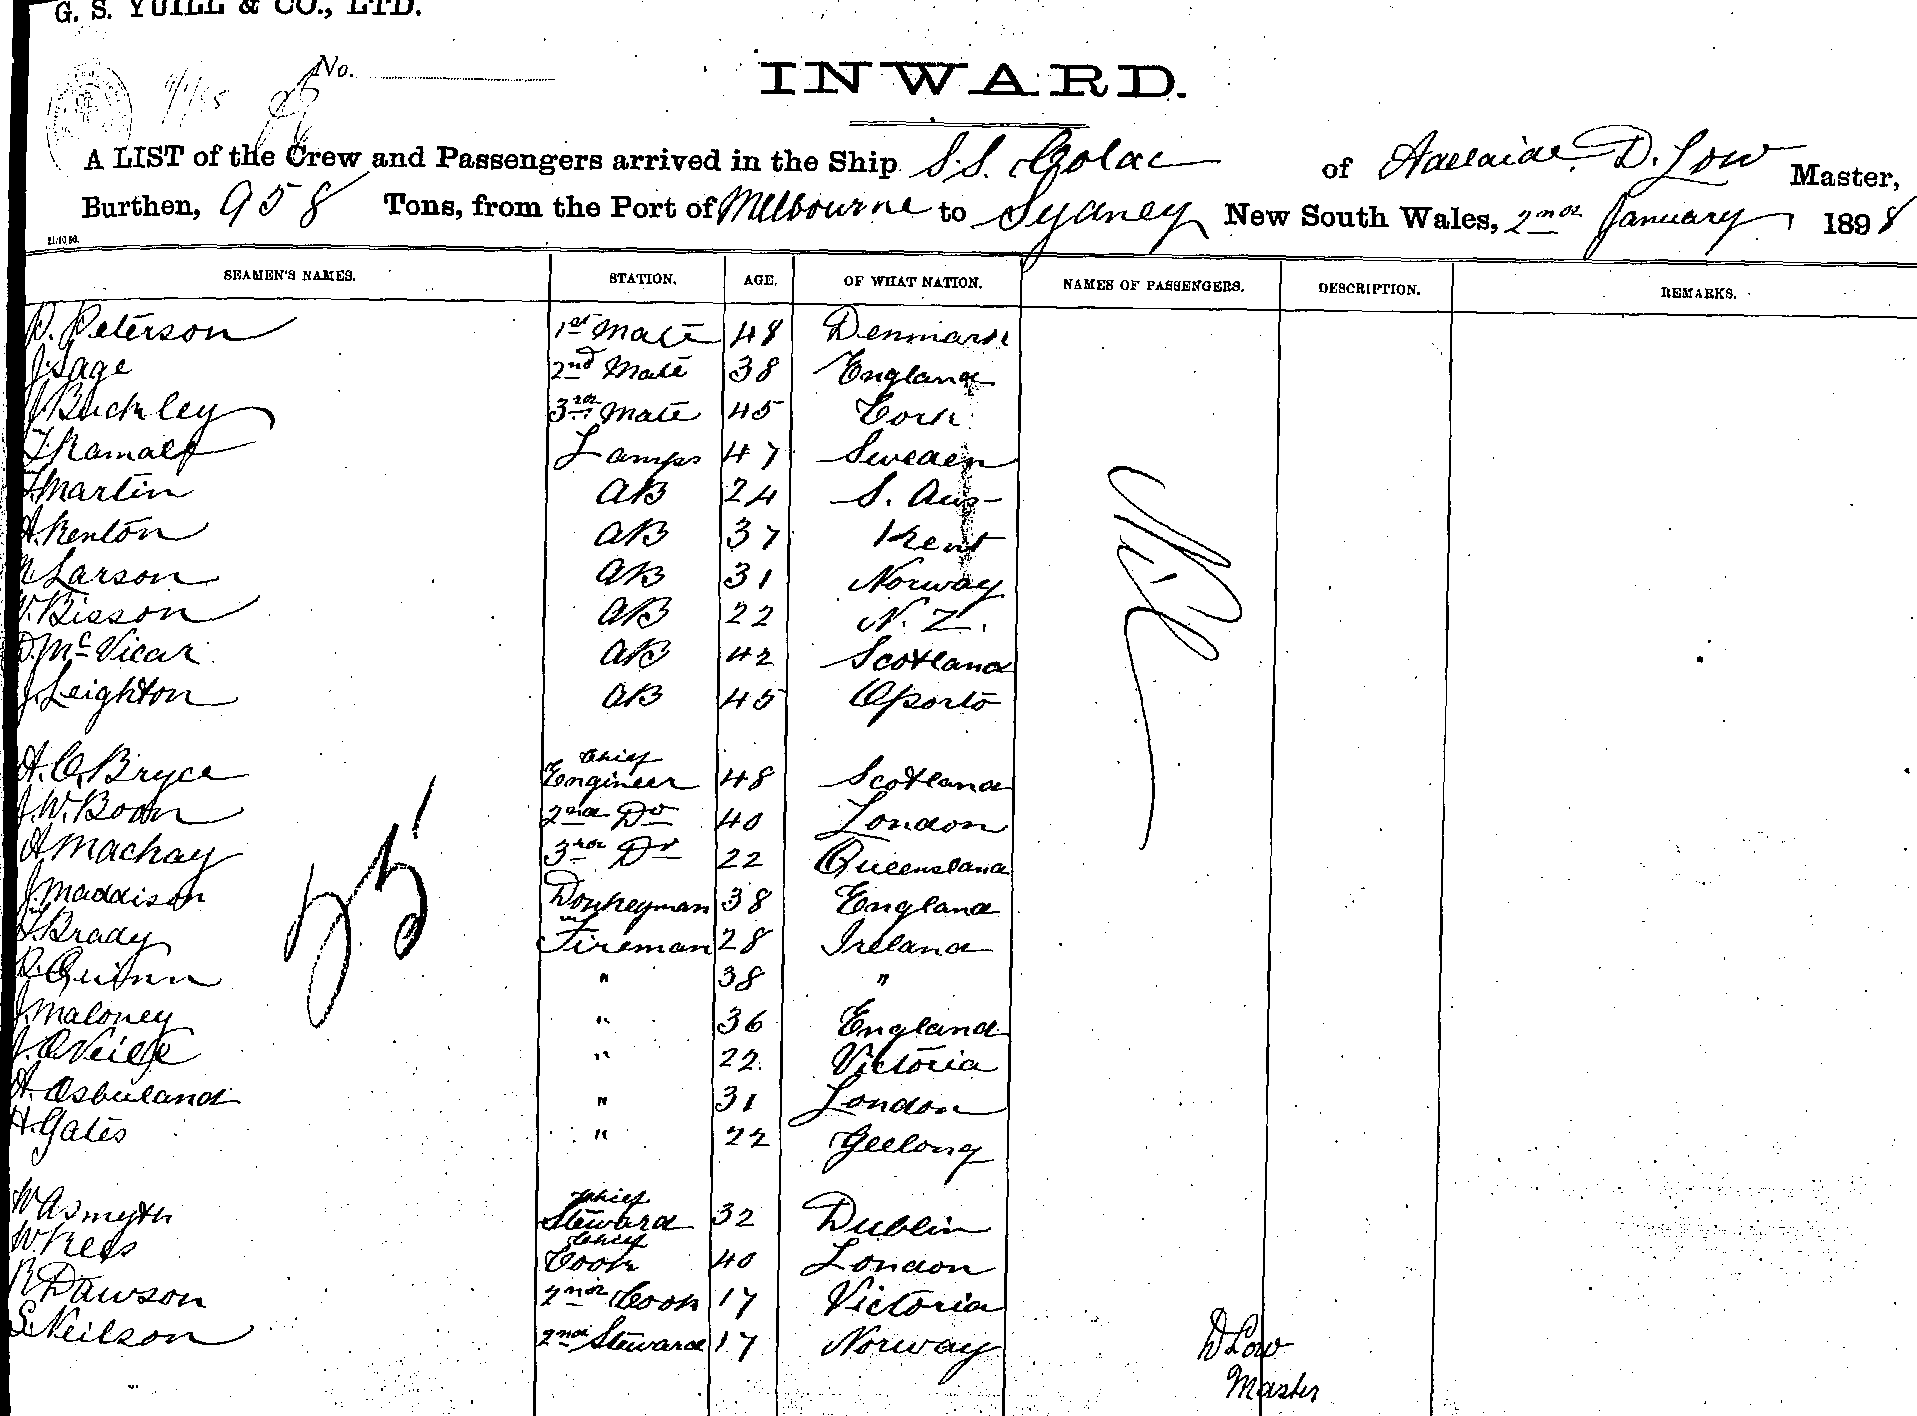 G. S. YUILL & CO., LTD.
No.
INWARD.
A LIST of the Crew and Passengers arrived in the Ship S.S. Colac of Adelaide D. Low Master,
Burthen, 958 Tons, from the Port of Melbourne to Sydney New South Wales, 2nd January 1898
SEAMEN'S NAMES. STATION. AGE. OF WHAT NATION. NAMES OF PASSENGERS. DESCRIPTION. REMARKS.
P. Peterson 1st Mate 48 Denmark
J. Sage 2nd Mate 38 England
J Buckley 3rd Mate 45 Cork
Lamps 47 Sweden
Martin AB 24 S. Aus
A. Kenton AB 37 Kent
Larson AB 31 Norway
Bisson AB 22 N. Z.
D. McVicar AB 42 Scotland
J. Leighton AB 45 Oporto
Nil
A. C. Bryce Chief Engineer 48 Scotland
J. W. Boon 2nd Do 40 London
A Mackay 3rd Do 22 Queensland
J. Maddison Donkeyman 38 England
Brady Fireman 28 Ireland
Quinn " 38 "
J. Maloney " 36 England
J. O'Neill " 22 Victoria
A. " 31 London
H. Gates " 22 Geelong
25
W A Smyth Chief Steward 32 Dublin
W. Rees Chief Cook 40 London
R Dawson 2nd Cook 17 Victoria
S. Neilson 2nd Steward 17 Norway
D Low
Master